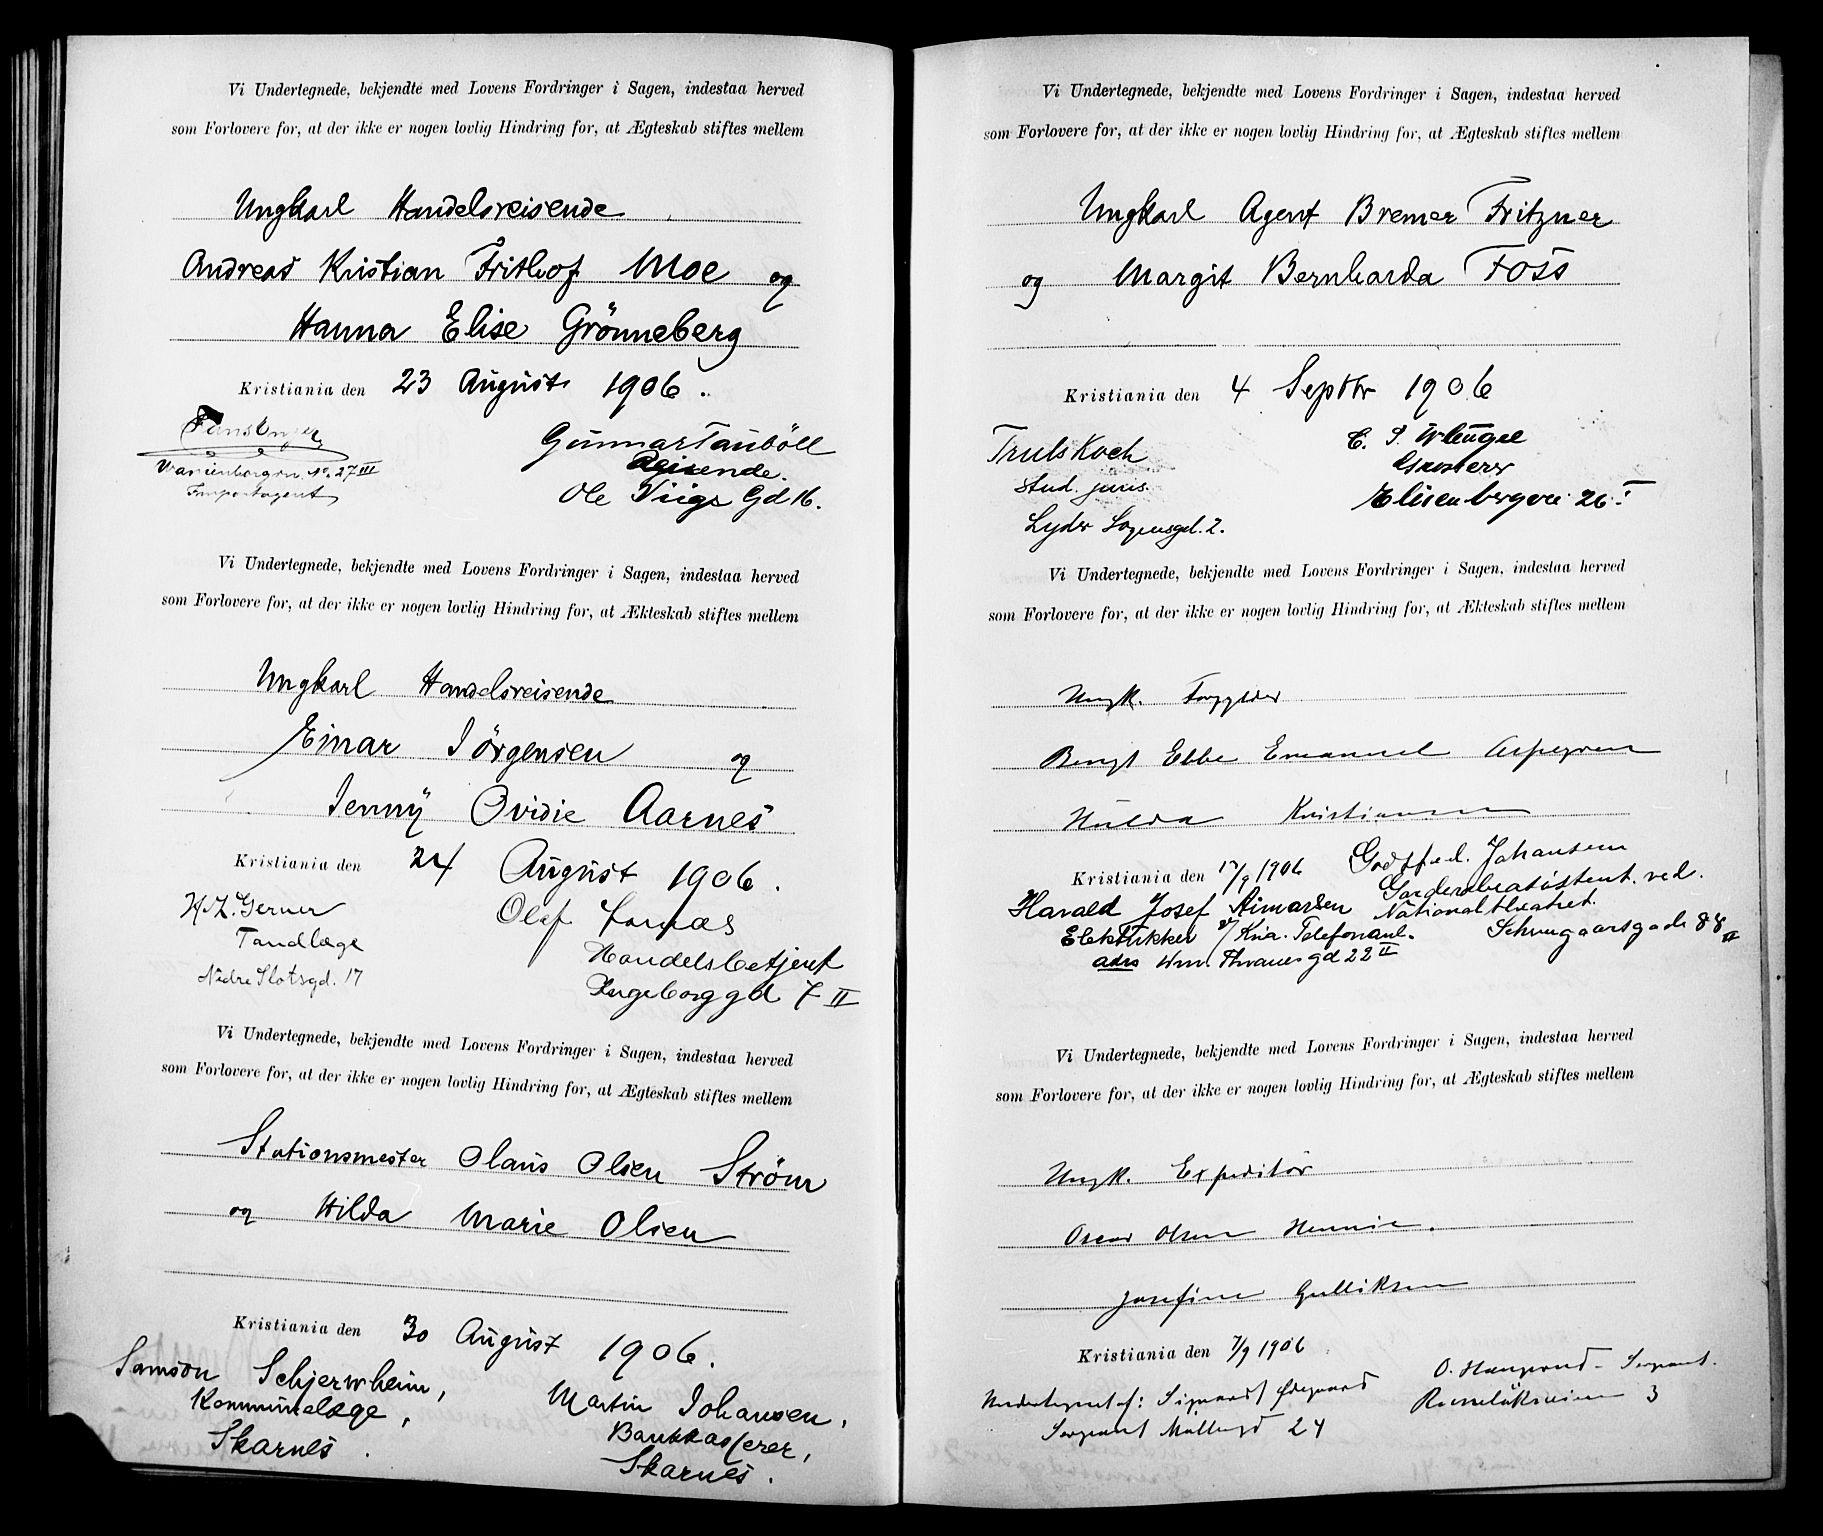 Vi Undertegnede, bekjendte med Lovens Fordringer i Sagen, indestaa herved
som Forlovere for, at der ikke er nogen lovlig Hindring for, at Ægteskab stiftes mellem
Ungkarl Handelsreisende
Andreas Kristian Frithof Moe og
Hanna Elise Grönneberg
Kristiania den 23 August 1906.
Gunnar Tauböll
Reisende.
Ole Viigs Gd 16.
No. 27 III
Importagent
Vi Undertegnede, bekjendte med Lovens Fordringer i Sagen, indestaa herved
som Forlovere for, at der ikke er nogen lovlig Hindring for, at Ækteskab stiftes mellem
Ungkarl Handelsreisende
Einar Jörgensen og
Jenny Ovidie Aarnes
Kristiania den 24 August 1906.
Gerner
Tandlæge
Nedre Slotsgd. 17
Olaf
Handelsbetjent
Ingeborggd 7 II
Vi Undertegnede, bekjendte med Lovens Fordringer i Sagen, indestaa herved
som Forlovere for, at der ikke er nogen lovlig Hindring for, at Ægteskab stiftes mellem
Stationsmester Olaus Olsen Ström
og Hilda Marie Olsen
Kristiania den 30 August 1906.
Samson Schjerwheim,
Kommunelæge,
Skarnes.
Martin Johansen,
Bankkasserer,
Skarnes.
Vi Undertegnede, bekjendte med Lovens Fordringer i Sagen, indestaa herved
som Forlovere for, at der ikke er nogen lovlig Hindring for, at Ægteskab stiftes mellem
Ungkarl Agent Bremer Fritzner
og Margit Bernharda Foss
Kristiania den 4 Septbr 1906
Truls Koch
stud. juris.
Lyder Sagensgd. 2.
Elisenbergvei 26 I
Vi Undertegnede, bekjendte med Lovens Fordringer i Sagen, indestaa herved
som Forlovere for, at der ikke er nogen lovlig Hindring for, at Ækteskab stiftes mellem
Ungk.
Bengt Ebbe Emanuel Aspegren
Hulda Kristiansen
Kristiania den 17/9 1906
Godtfred. Johansen
Garderobeassistent. ved.
Nationaltheatret.
Schweigaardsgade 88 II
Harald Josef
Elektrikker v/ Kria. Telefonanl.
adrs Wm. Thranesgd 22 II
Vi Undertegnede, bekjendte med Lovens Fordringer i Sagen, indestaa herved
som Forlovere for, at der ikke er nogen lovlig Hindring for, at Ægteskab stiftes mellem
Ungk. Expeditör
Oscar Olsen Hennie.
Josefine Gulliksen
Kristiania den 7/9 1906
Undertegnet af: Sigvard Ødegaard
Sergeant Möllergd 24
O. Haugerud - Sergeant.
3